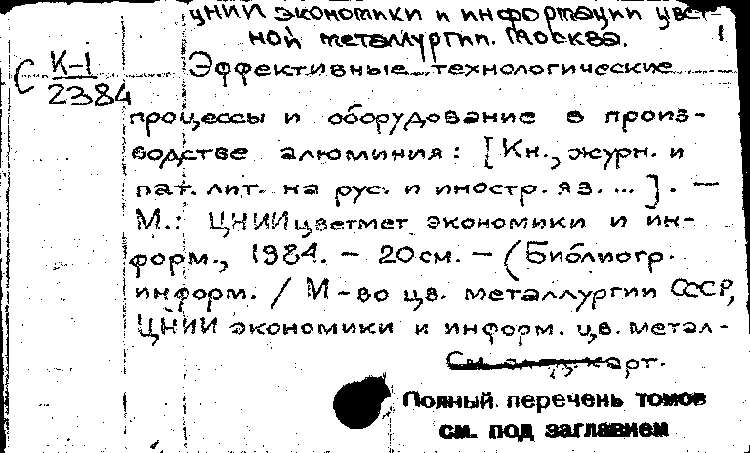 ЦНИИ экономики и информации цвет-
ной металлургии. Москва. 1
С К-1
2384
Эффективные технологические
процессы и оборудование в произ-
водстве алюминия: [Кн., журн. и
пат. лит. на рус. и иностр. яз. ...]. —
М.: ЦНИИцветмет экономики и ин-
форм., 1984. - 20см. - (Библиогр.
информ. / М-во цв. металлургии СССР,
ЦНИИ экономики и информ. цв. метал-
См. карт.
Полный перечень томов
см. под заглавием